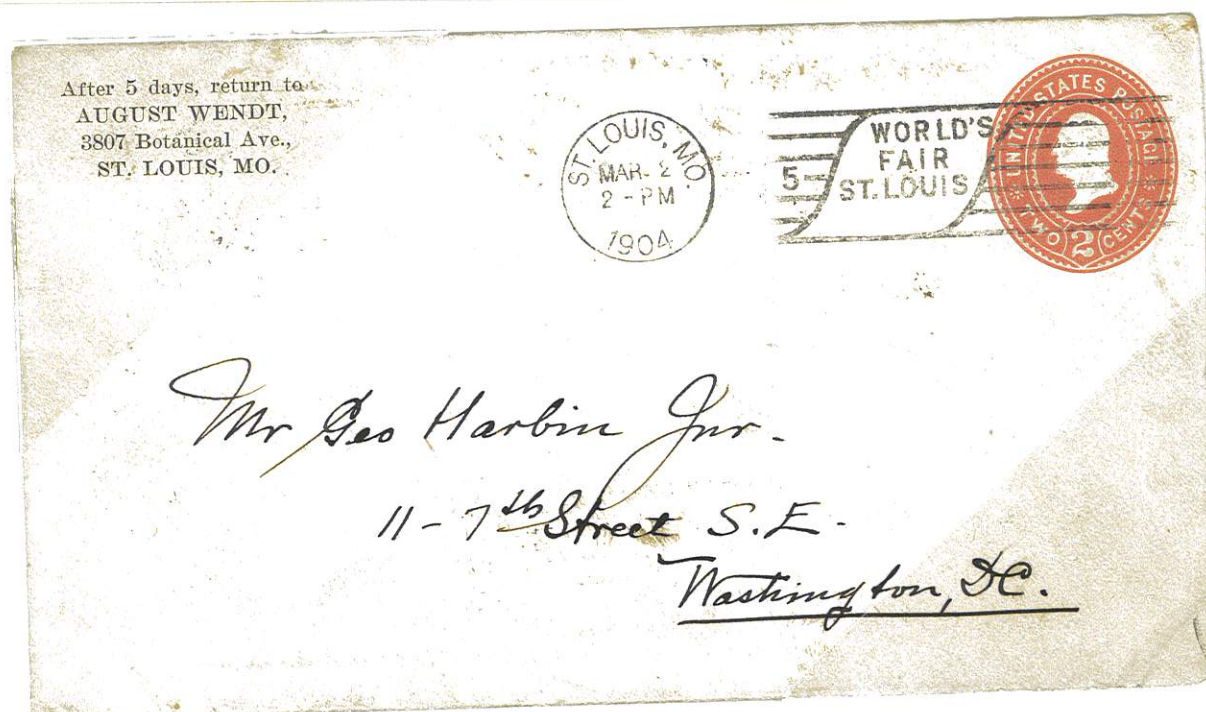 After 5 days, return to
AUGUST WENDT,
3807 Botanical Ave.,
ST. LOUIS, MO.
ST. LOUIS, MO.
MAR. 2
2 - PM
1904
5
WORLD'S
FAIR
ST. LOUIS
UNITED STATES POSTAGE
TWO 2 CENTS
Mr Geo Harbin Jnr.
11 - 7th Street S.E.
Washington, DC.